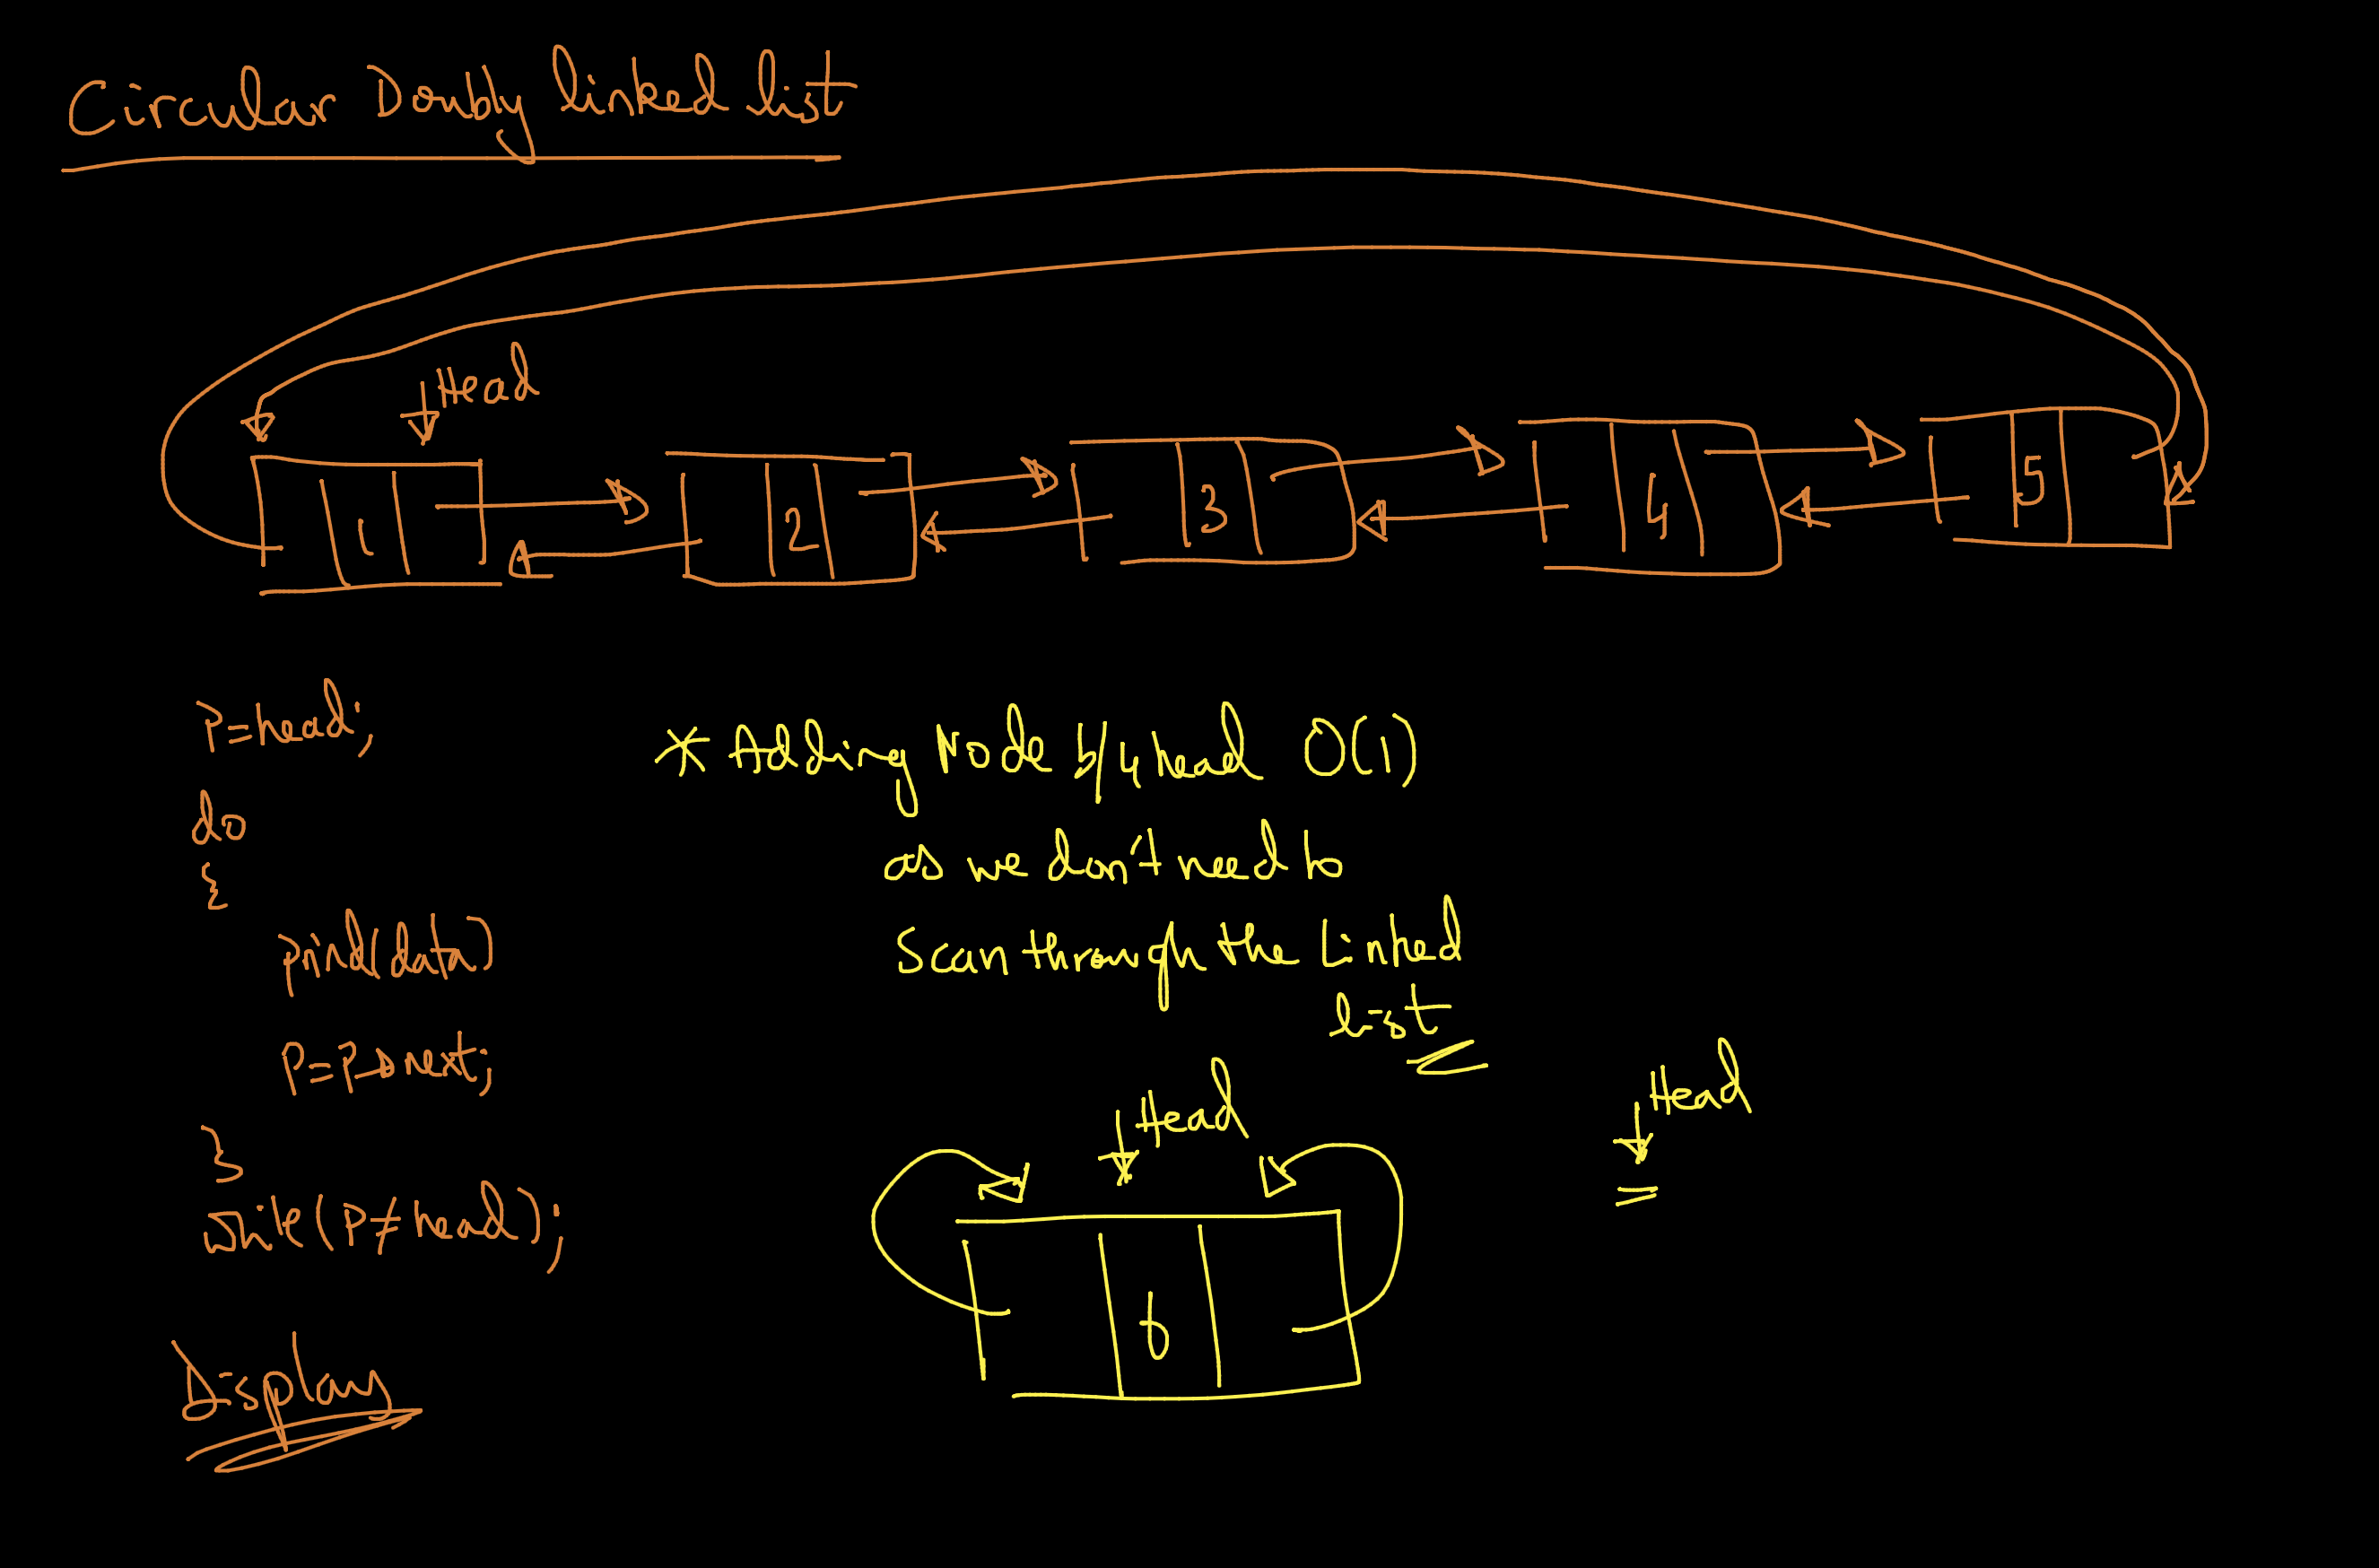 Circular Doubly linked list
Head
1 2 3 4 5
P=head;
do
{
print(data)
P=P→next;
}
while(P≠head);
Display
* Adding Node b/4 head O(1)
as we don't need to
Scan through the Linked
list
Head
6
Head
=